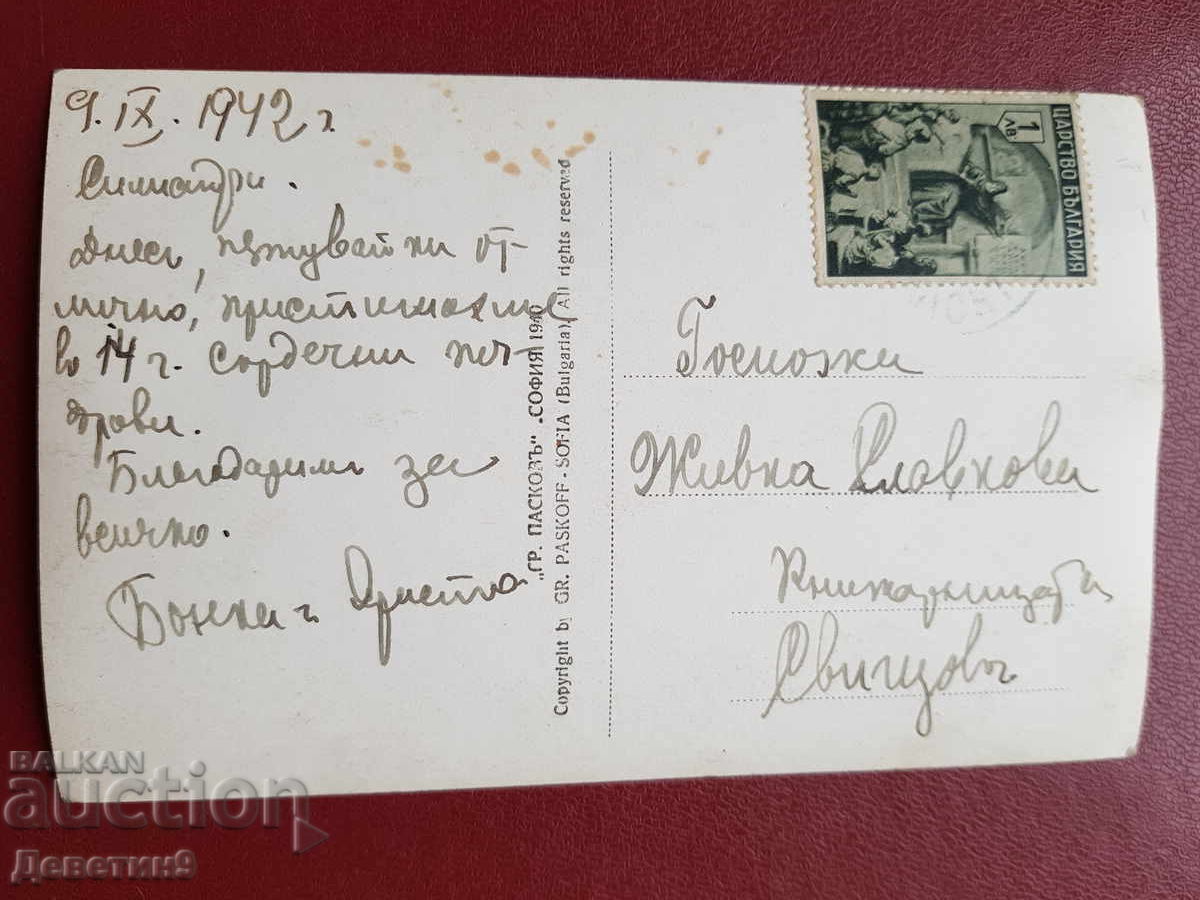 9.IX.1942 г.
Силистра.
Днесъ, пѫтувайки от-
лично, пристигнахме
въ 14 ч. Сърдечни поз-
драви.
Благодарим за
всичко.
Бонка и Христо
"ГР. ПАСКОВЪ" - СОФИЯ 1940
Copyright by GR. PASKOFF - SOFIA (Bulgaria). All rights reserved
1 ЛВ
ЦАРСТВО БЪЛГАРИЯ
Госпожа
Живка Славкова
Книжарницата
Свищовъ
BALKAN
auction
Деветин9